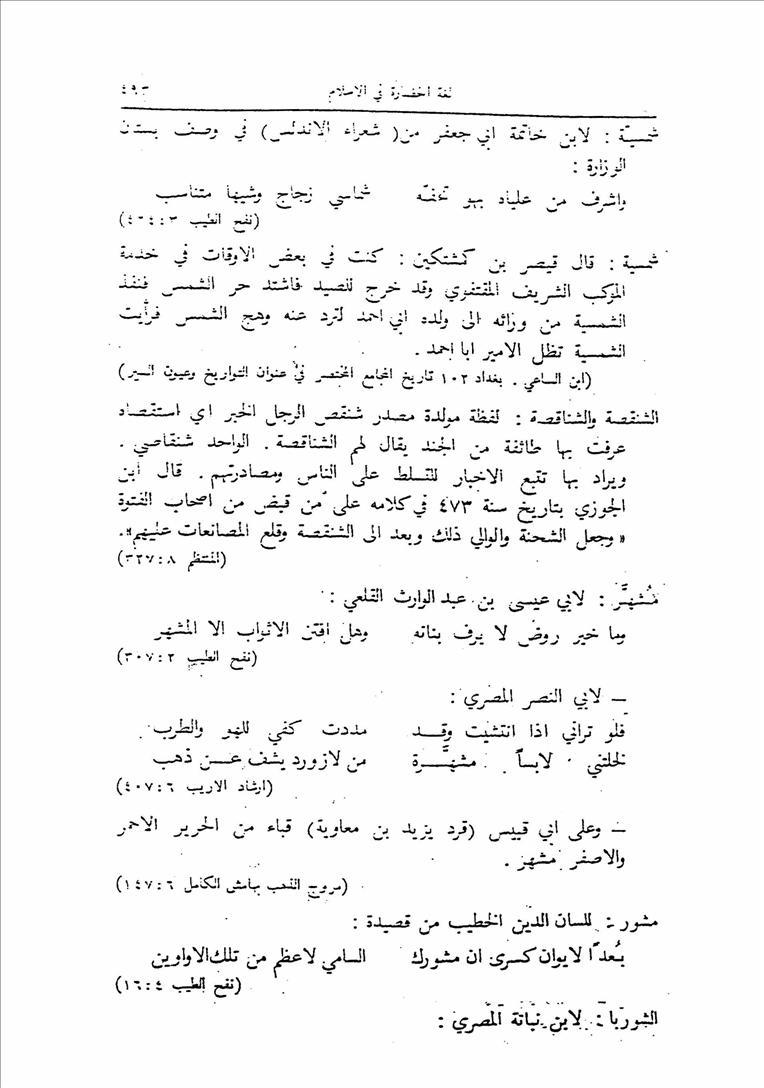 لغة الحضارة في الاسلام ٤٩٣
شمسيّة : لابن خاتمة ابي جعفر من ( شعراء الاندلس ) في وصف بستان
الوزارة :
واشرف من علياه بهو تحفّه شماسي زجاج وشيها متناسب
(نفح الطيب ٣ : ٤٦٤)
شمسية : قال قيصر بن كمشتكين : كنت في بعض الاوقات في خدمة
المركب الشريف المقتفوي وقد خرج للصيد فاشتد حر الشمس فنفذ
الشمسية من ورائه الى ولده ابي احمد لترد عنه وهج الشمس فرأيت
الشمسية تظل الامير ابا احمد .
(ابن الساعي . بغداد ١٠٢ تاريخ الجامع المختصر في عنوان التواريخ وعيون السير)
الشنقصة والشناقصة : لفظة مولدة مصدر شنقص الرجل الخبر اي استقصاه
عرفت بها طائفة من الجند يقال لهم الشناقصة . الواحد شنقاصي .
ويراد بها تتبع الاخبار للتسلط على الناس ومصادرتهم . قال ابن
الجوزي بتاريخ سنة ٤٧٣ في كلامه على من قبض من اصحاب الفتوة
« وجعل الشحنة والوالي ذلك وبعد الى الشنقصة وقلع المصانعات عليهم».
(المنتظم ٨ : ٣٢٧)
مُشهَّر : لابي عيسى بن عبد الوارث القلعي :
وما خير روض لا يرف بناته وهل افتن الاثواب الا المشهر
(نفح الطيب ٢ : ٣٠٧)
– لابي النصر المصري :
فلو تراني اذا انتشيت وقد مددت كفي للهو والطرب
لخلتني لابساً مشهَّرة من لازورد يشف عن ذهب
(ارشاد الاريب ٦ : ٤٠٧)
– وعلى ابي قبيس (قرد يزيد بن معاوية) قباء من الحرير الاحمر
والاصفر مشهر .
(مروج الذهب بهامش الكامل ٦ : ١٤٧)
مشور : للسان الدين الخطيب من قصيدة :
بُعداً لايوان كسرى ان مشورك السامي لاعظم من تلك الاواوين
(نفح الطيب ٤ : ١٦)
الشوربا : لابن نباتة المصري :